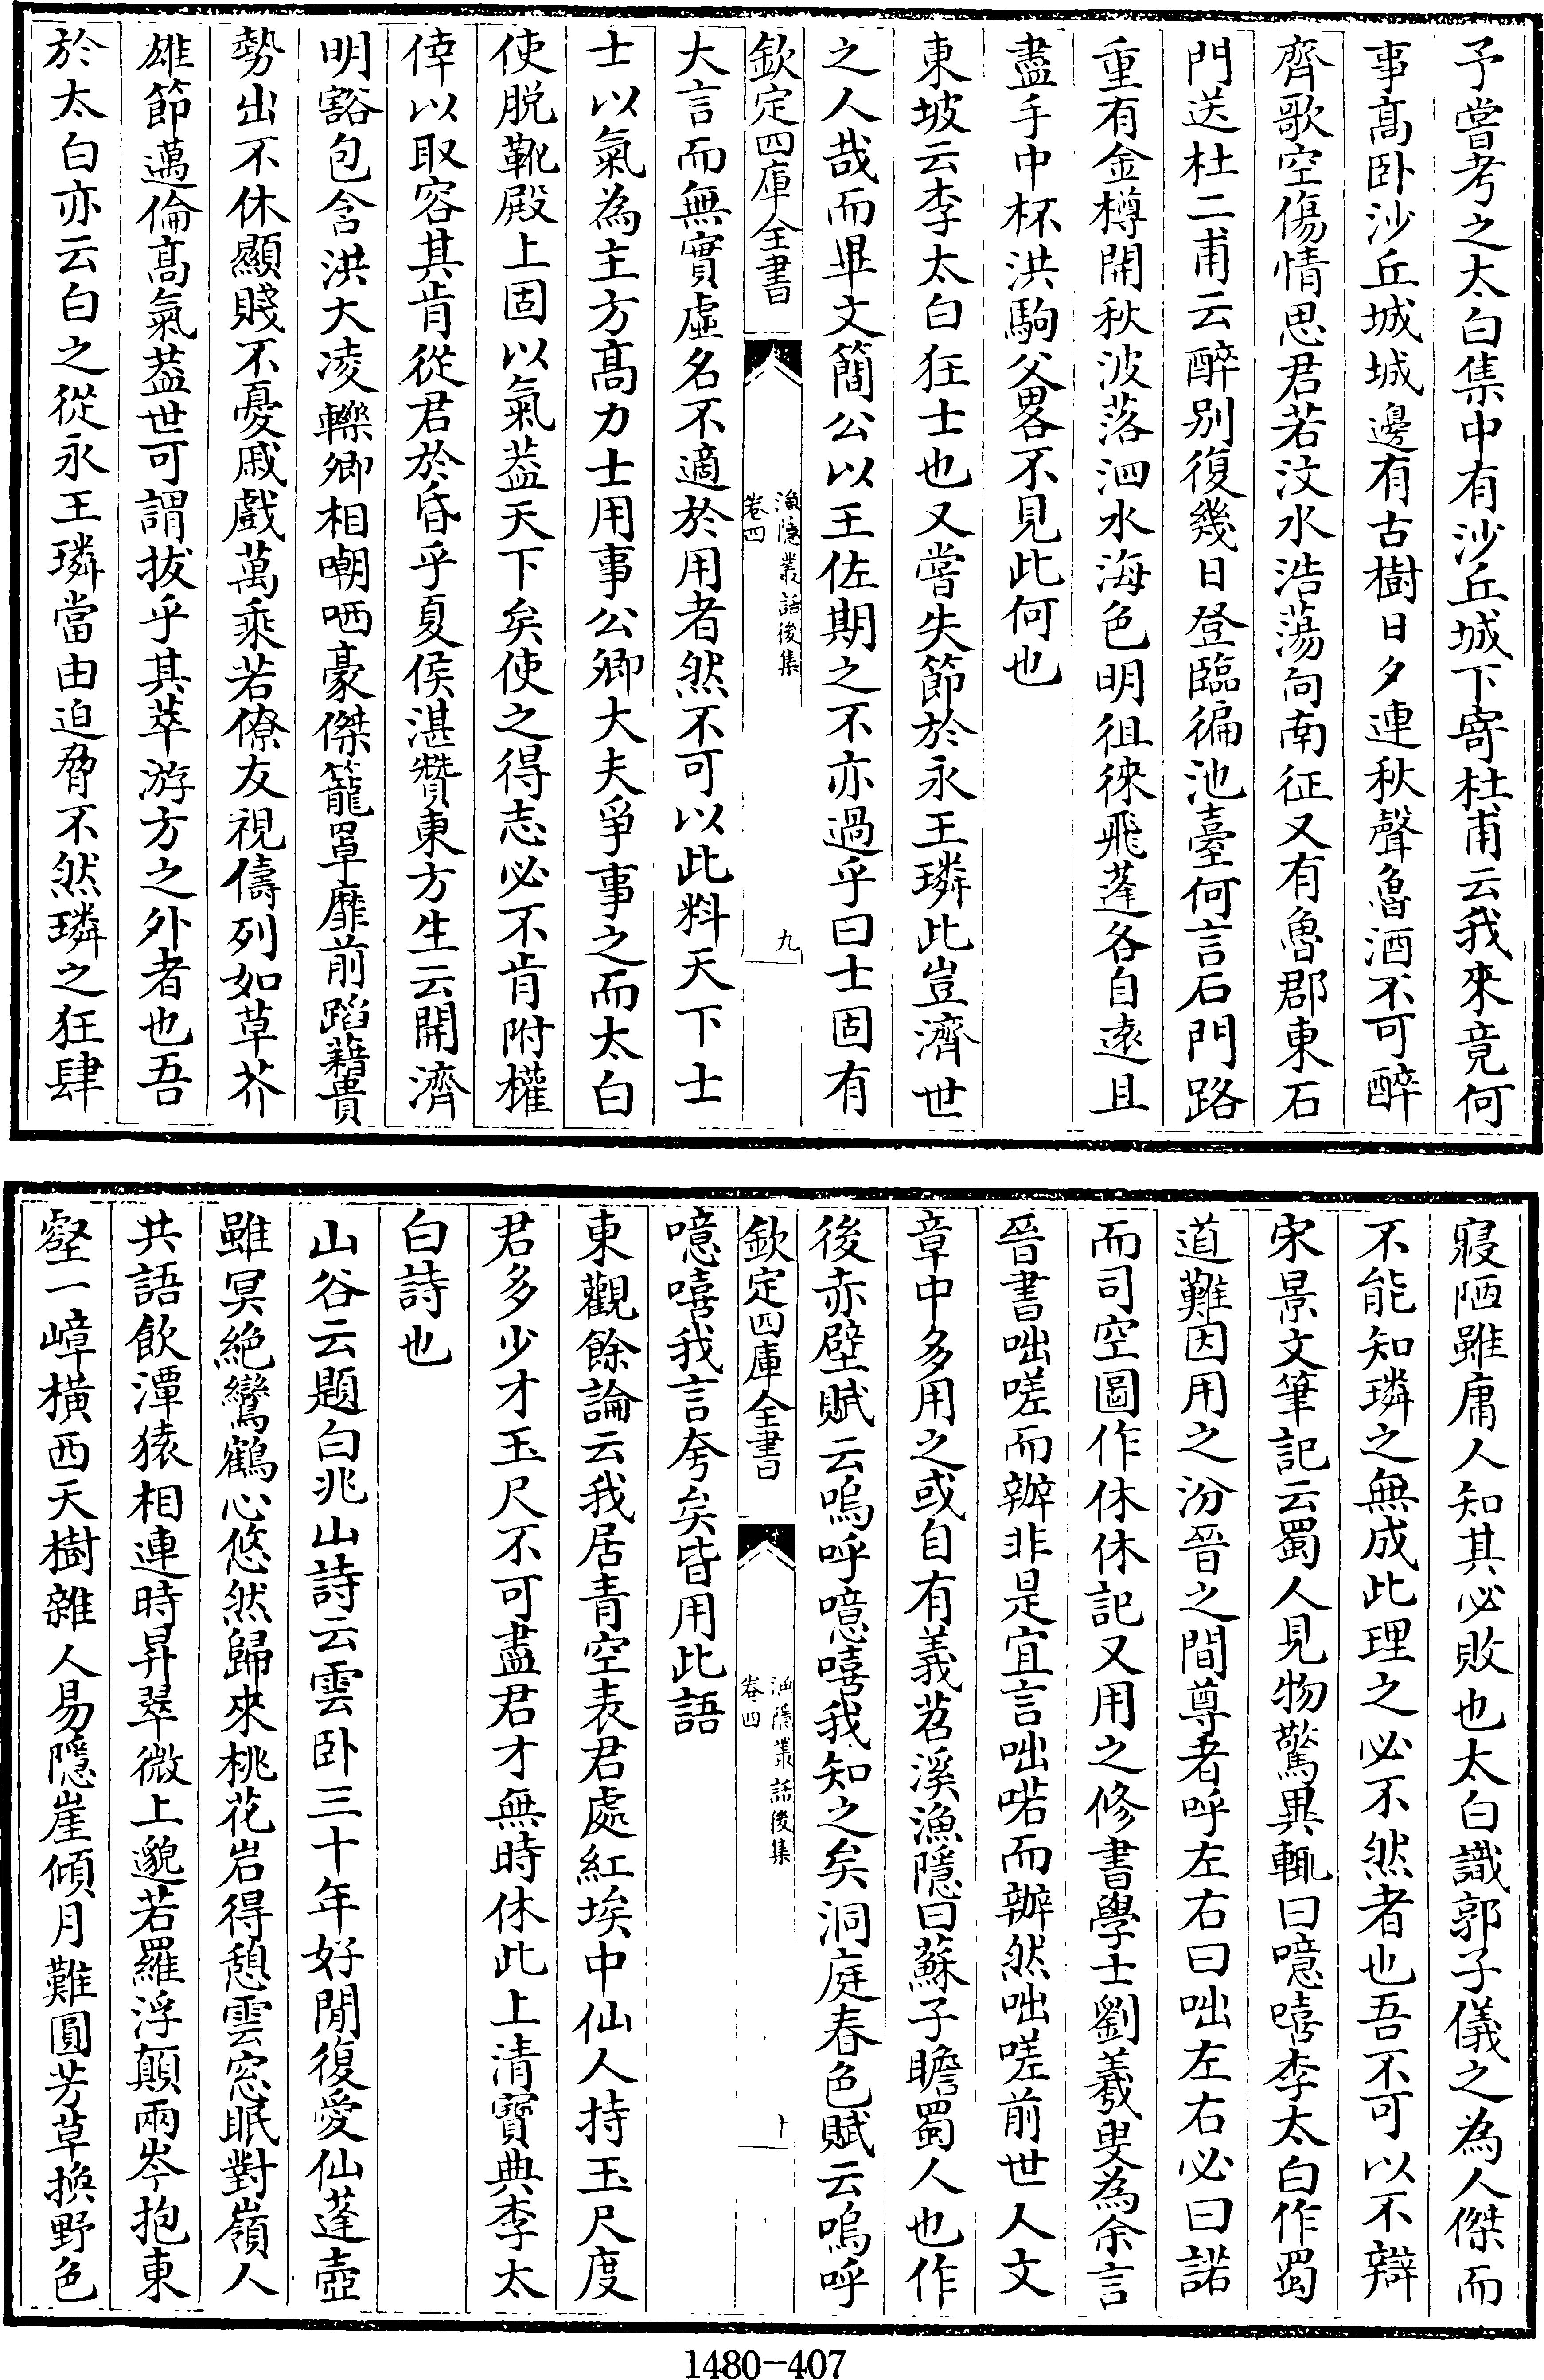 予嘗考之太白集中有沙丘城下寄杜甫云我來竟何
事髙卧沙丘城城邊有古樹日夕連秋聲魯酒不可醉
齊歌空傷情思君若汶水浩蕩向南征又有魯郡東石
門送杜二甫云醉别復幾日登臨徧池臺何言石門路
重有金樽開秋波落泗水海色明徂徠飛蓬各自逺且
盡手中杯洪駒父畧不見此何也
東坡云李太白狂士也又嘗失節於永王璘此豈濟世
之人哉而畢文簡公以王佐期之不亦過乎曰士固有
欽定四庫全書
漁隱叢話後集
卷四
九
大言而無實虛名不適於用者然不可以此料天下士
士以氣為主方髙力士用事公卿大夫爭事之而太白
使脱靴殿上固以氣葢天下矣使之得志必不肯附權
倖以取容其肯從君於昏乎夏侯湛贊東方生云開濟
明豁包含洪大凌轢卿相嘲哂豪傑籠罩靡前蹈藉貴
勢出不休顯賤不憂戚戲萬乘若僚友視儔列如草芥
雄節邁倫髙氣葢世可謂拔乎其萃游方之外者也吾
於太白亦云白之從永王璘當由迫脅不然璘之狂肆
寢陋雖庸人知其必敗也太白識郭子儀之為人傑而
不能知璘之無成此理之必不然者也吾不可以不辯
宋景文筆記云蜀人見物驚異輒曰噫嘻李太白作蜀
道難因用之汾晉之間尊者呼左右曰咄左右必曰諾
而司空圖作休休記又用之修書學士劉羲叟為余言
晉書咄嗟而辦非是宜言咄喏而辦然咄嗟前世人文
章中多用之或自有義苕溪漁隱曰蘇子瞻蜀人也作
後赤壁賦云嗚呼噫嘻我知之矣洞庭春色賦云嗚呼
欽定四庫全書
漁隱叢話後集
卷四
十
噫嘻我言夸矣皆用此語
東觀餘論云我居青空表君處紅埃中仙人持玉尺度
君多少才玉尺不可盡君才無時休此上清寶典李太
白詩也
山谷云題白兆山詩云雲卧三十年好閒復愛仙蓬壺
雖冥絶鸞鶴心悠然歸來桃花岩得憩雲窓眠對嶺人
共語飲潭猿相連時昇翠微上邈若羅浮顛兩岑抱東
壑一嶂橫西天樹雜人易隱崖傾月難圓芳草換野色
1480-407